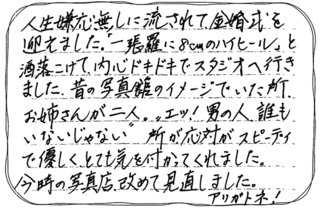 人生嫌応無しに流されて、金婚式を
迎えました。"一張羅に8cmのハイヒール"と
洒落こけて内心ドキドキでスタジオへ行き
ました、昔の写真館のイメージでいた所、
お姉さんが二人。"エッ!男の人、誰も
いないじゃない"所が応対がスピーディ
で優しく、とても気を付かってくれました。
今時の写真店、改めて見直しました。
アリガトネ!